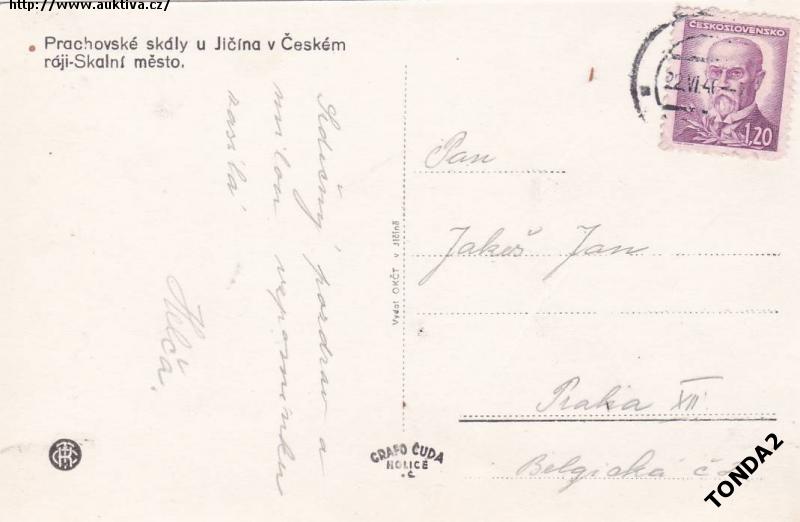 http://www.auktiva.cz/
Prachovské skály u Jičína v Českém
ráji-Skalní město.
Srdečný pozdrav a
milou vzpomínku
zasílá
ČESKOSLOVENSKO
1,20
22.VI.46
Pan
Jakeš Jan
Praha XII.
Belgická
Vydal OKČT v Jičíně
GRAFO ČUDA
HOLICE
TONDA2